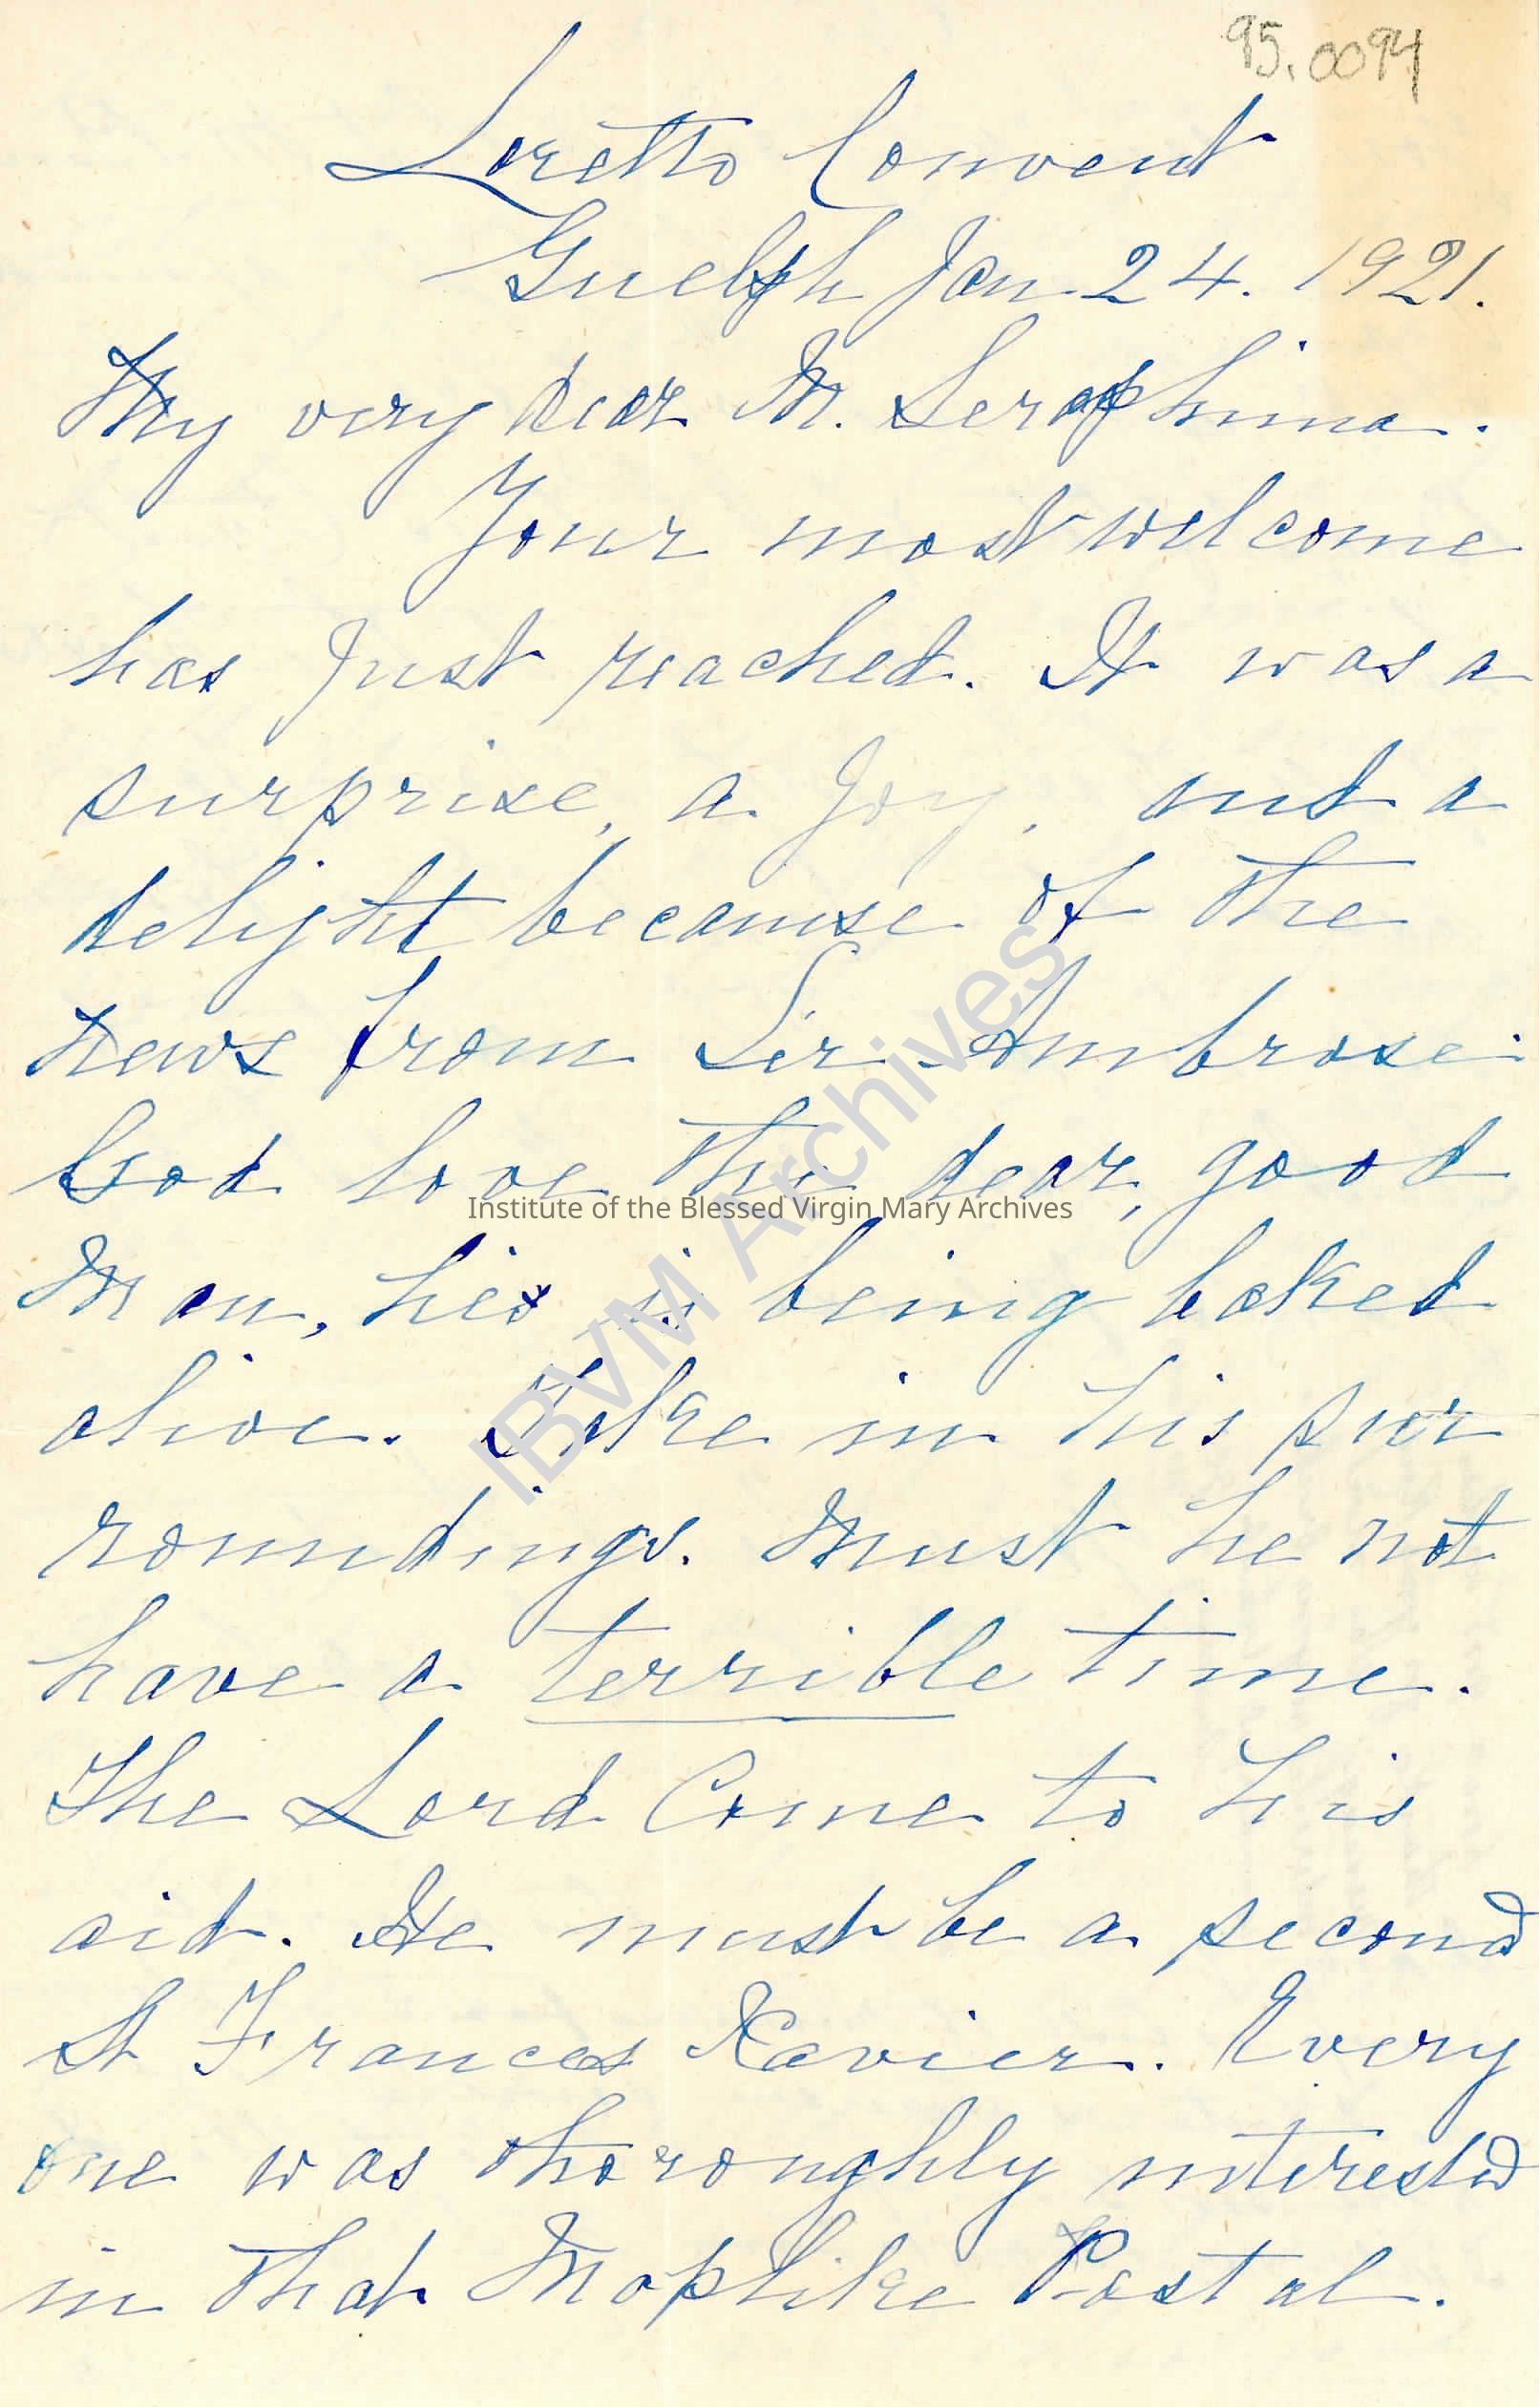 95.0094
Loretto Convent
Guelph Jan. 24. 1921.
My very dear M. Seraphina.
Your most welcome
has just reached. It was a
surprise, a joy, and a
delight because of the
news from Sir Ambrose.
God love the dear, good
Man, he is being baked
alive. Take in his sur
roundings. Must he not
have a terrible time.
The Lord Come to his
aid. He must be a second
St Frances Xavier. Every
one was thoroughly interested
in that Maplike Postal.
IBVM Archives
Institute of the Blessed Virgin Mary Archives